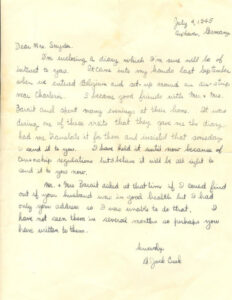 July 9, 1945
Germany
Dear Mrs. Snyder.
I'm enclosing a diary which I'm sure will be of
interest to you. It came into my hands last September
when we entered Belgium and set up around an air strip
near Charleroi. I became good friends with Mr. & Mrs.
and spent many evenings at their home. It was
during one of these visits that they gave me the diary
had me translate it for them and insisted that someday
I send it to you. I have held it until now because of
censorship regulations but believe it will be all right to
send it to you now.
Mr. & Mrs. asked at that time if I could find
out if your husband was in good health but I had
only your address so I was unable to do that. I
have not seen them in several months so perhaps you
have written to them.
Sincerely,
Jack